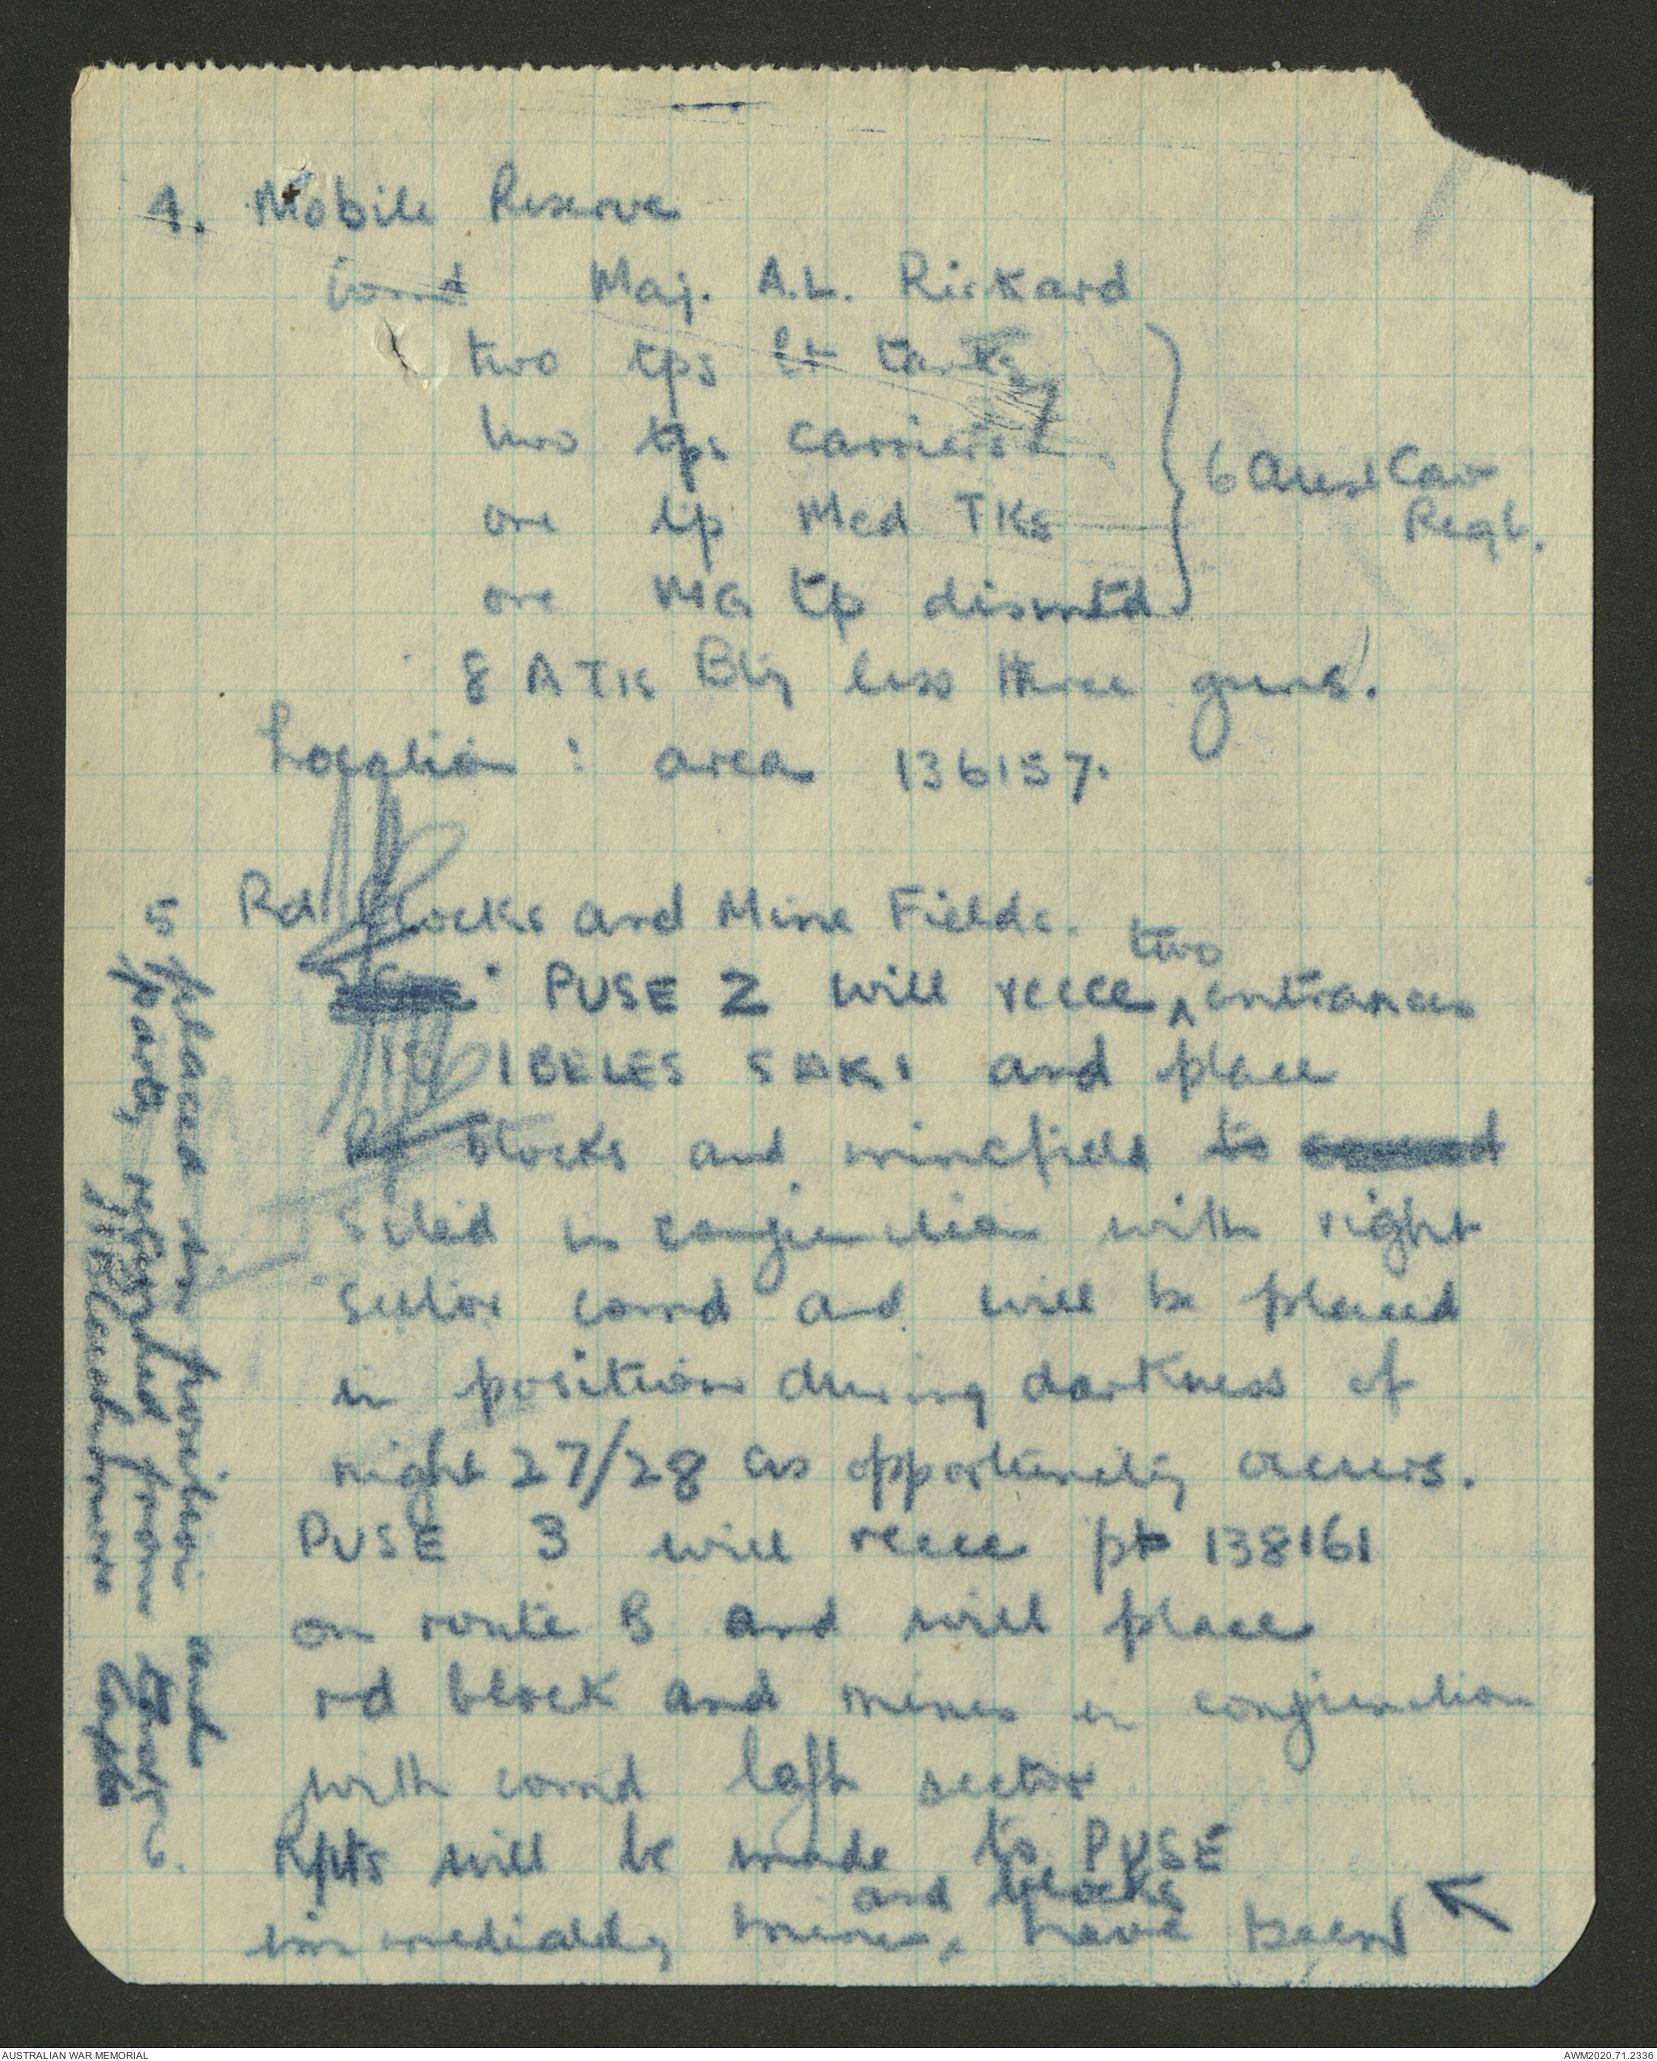 4. Mobile Reserve
Comd Maj. A.L. Rickard
two tps Lt tanks
two tps carriers
one tp Med TKs
one MG tp dismtd
6 Aust Cav
Regt.
8 A TK Bty less three guns.
Location : area 136157.
5 Rd Blocks and Mine Fields.
PUSE 2 will recce two entrances
IBELES SAKI and place
Rd blocks and minefield to
sited in conjunction with right
sector comd and will be placed
in position during darkness of
night 27/28 as opportunity occurs.
PUSE 3 will recce pt 138161
on route B and will place
rd block and mines in conjunction
with comd left sector
6. Rpts will be made to PUSE
immediately mines and blocks have been
placed in position and
party returned from